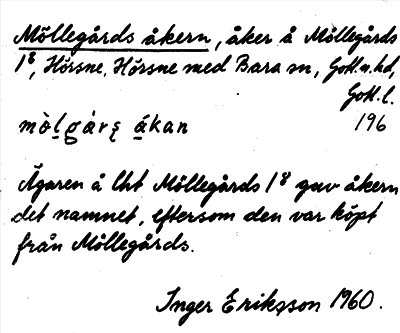 Möllegårds åkern, åker å Möllegårds
1⁸, Hörsne, Hörsne med Bara sn, Gotl.n.hd,
Gotl.l.
196
Ägaren å lht Möllegårds 1⁸ gav åkern
det namnet, eftersom den var köpt
från Möllegårds.
Inger Eriksson 1960.